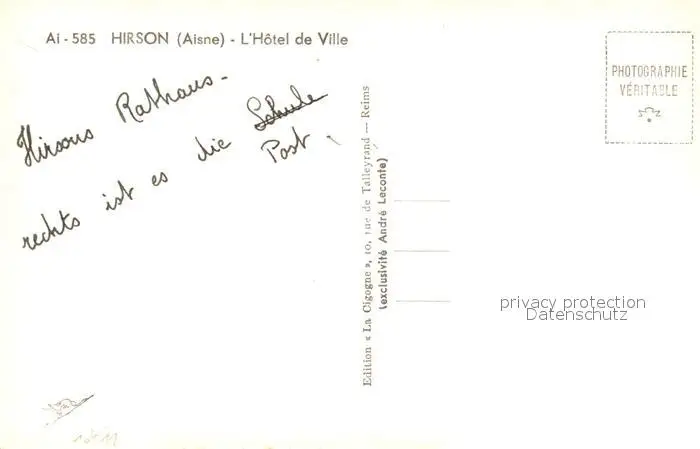 Ai - 585 HIRSON (Aisne) - L'Hôtel de Ville
Hirsons Rathaus -
rechts ist es die Schule
Post
Edition « La Cigogne », 10, rue de Talleyrand — Reims
(exclusivité André Leconte)
PHOTOGRAPHIE
VÉRITABLE
privacy protection
Datenschutz